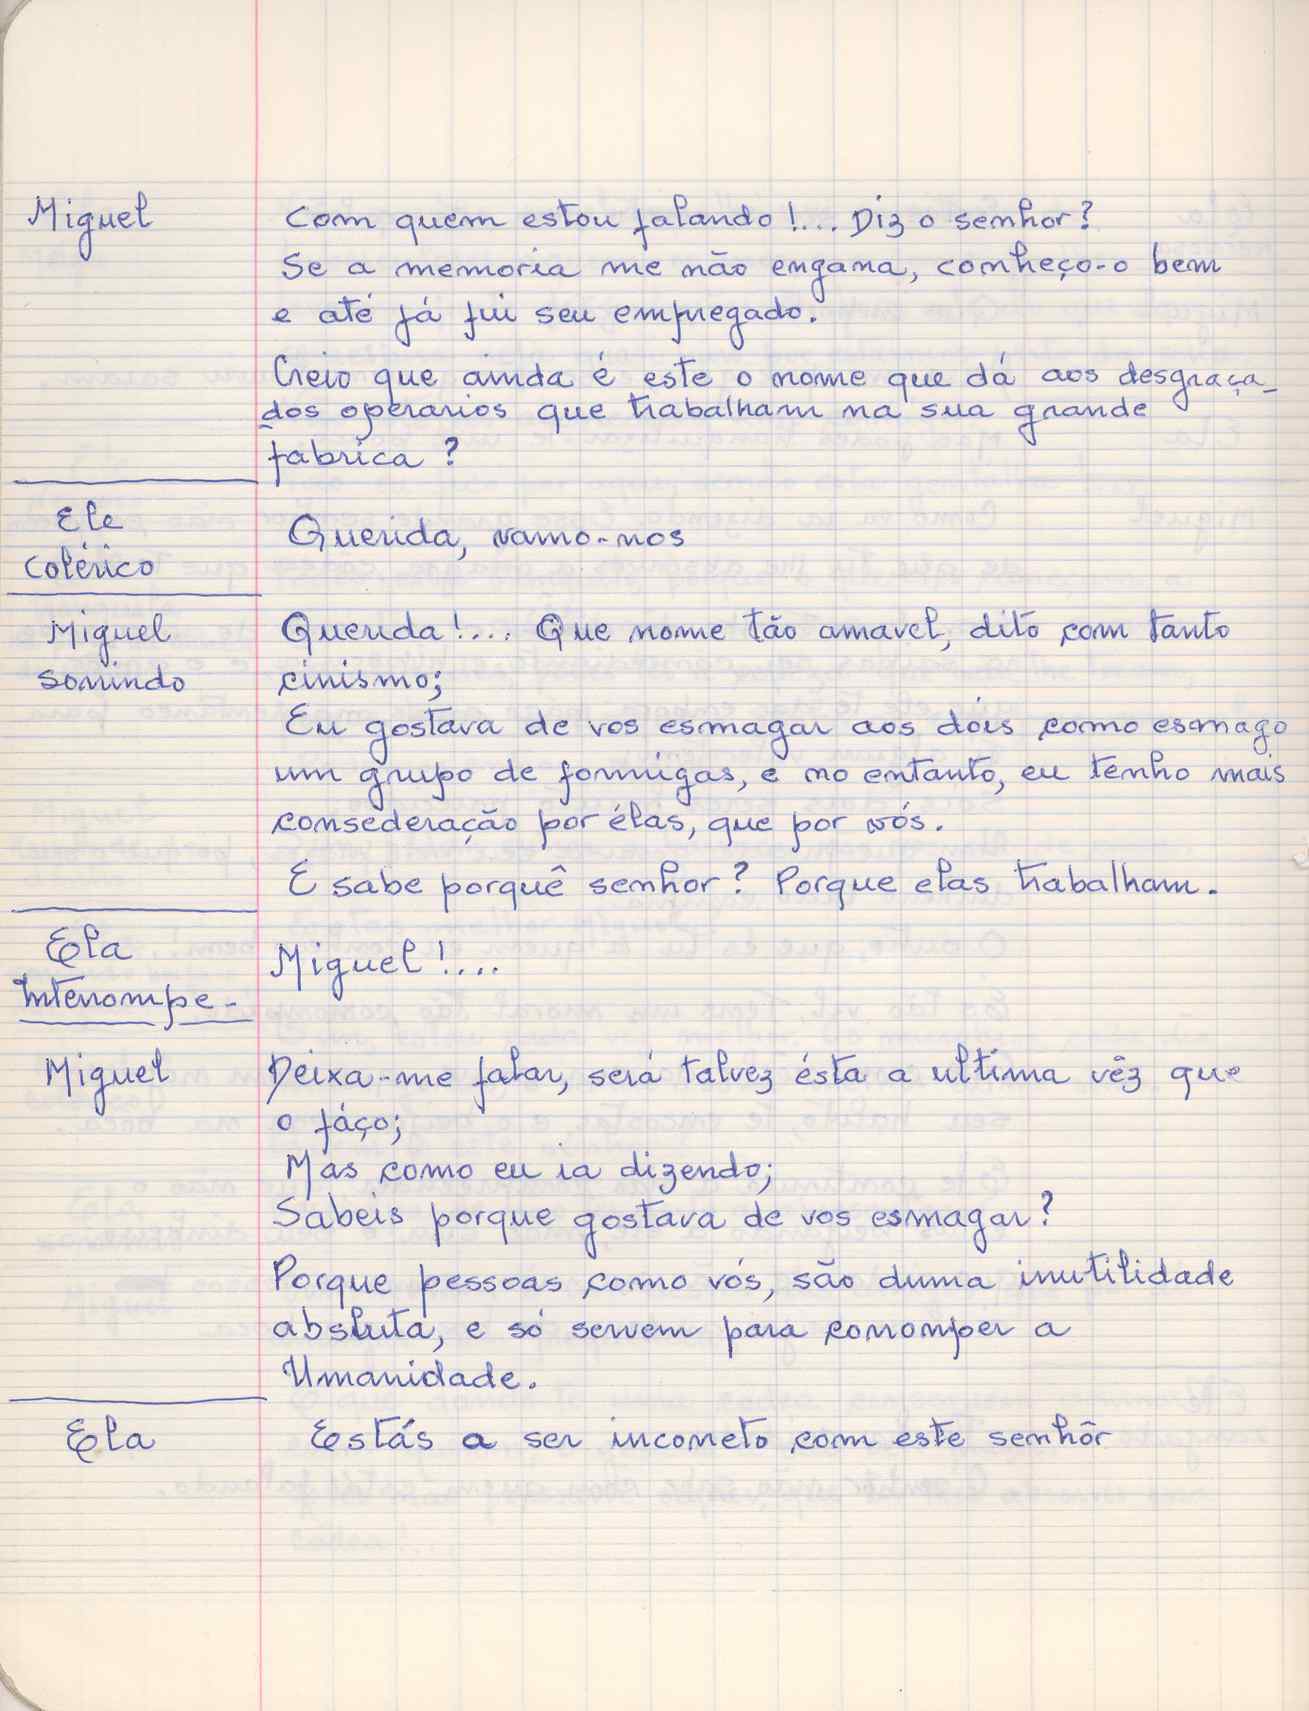 Miguel Com quem estou falando!... Diz o senhor?
Se a memoria me não engana, conheço-o bem
e até já fui seu empregado.
Creio que ainda é este o nome que dá aos desgraça-
dos operarios que trabalham na sua grande
fabrica?
Ele
colérico
Querida, vamo-nos
Miguel Querida!... Que nome tão amavel, dito com tanto
sorrindo cinismo;
Eu gostava de vos esmagar aos dois como esmago
um grupo de formigas, e no entanto, eu tenho mais
consederação por élas, que por vós.
E sabe porquê senhor? Porque elas trabalham.
Ela
Interrompe-
Miguel!...
Miguel Deixa-me falar, será talvez ésta a ultima vêz que
o fáço;
Mas como eu ia dizendo;
Sabeis porque gostava de vos esmagar?
Porque pessoas como vós, são duma inutilidade
absluta, e só servem para corromper a
Umanidade.
Ela Estás a ser incorreto com este senhôr